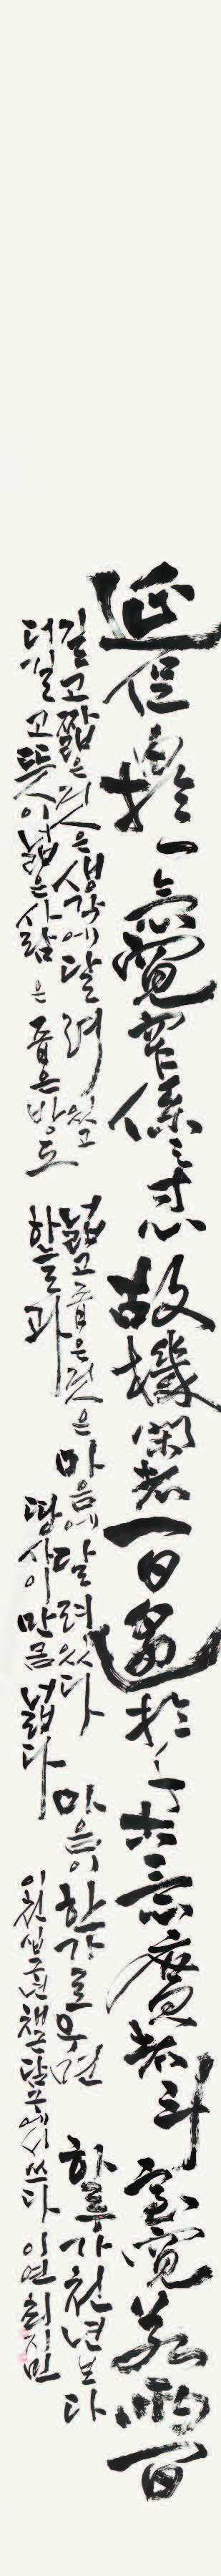 延促由於一念寬窄係之寸心故機閑者一日遙於千古意廣者斗室寬若兩間
길고 짧은 것은 생각에 달려있고 넓고 좁은 것은 마음에 달려있다 마음이 한가로우면 하루가 천년보다
더 길고 뜻이 넓은 사람은 좁은 방도 하늘과 땅 사이만큼 넓다 이천십구년 채근담 구에서 쓰다